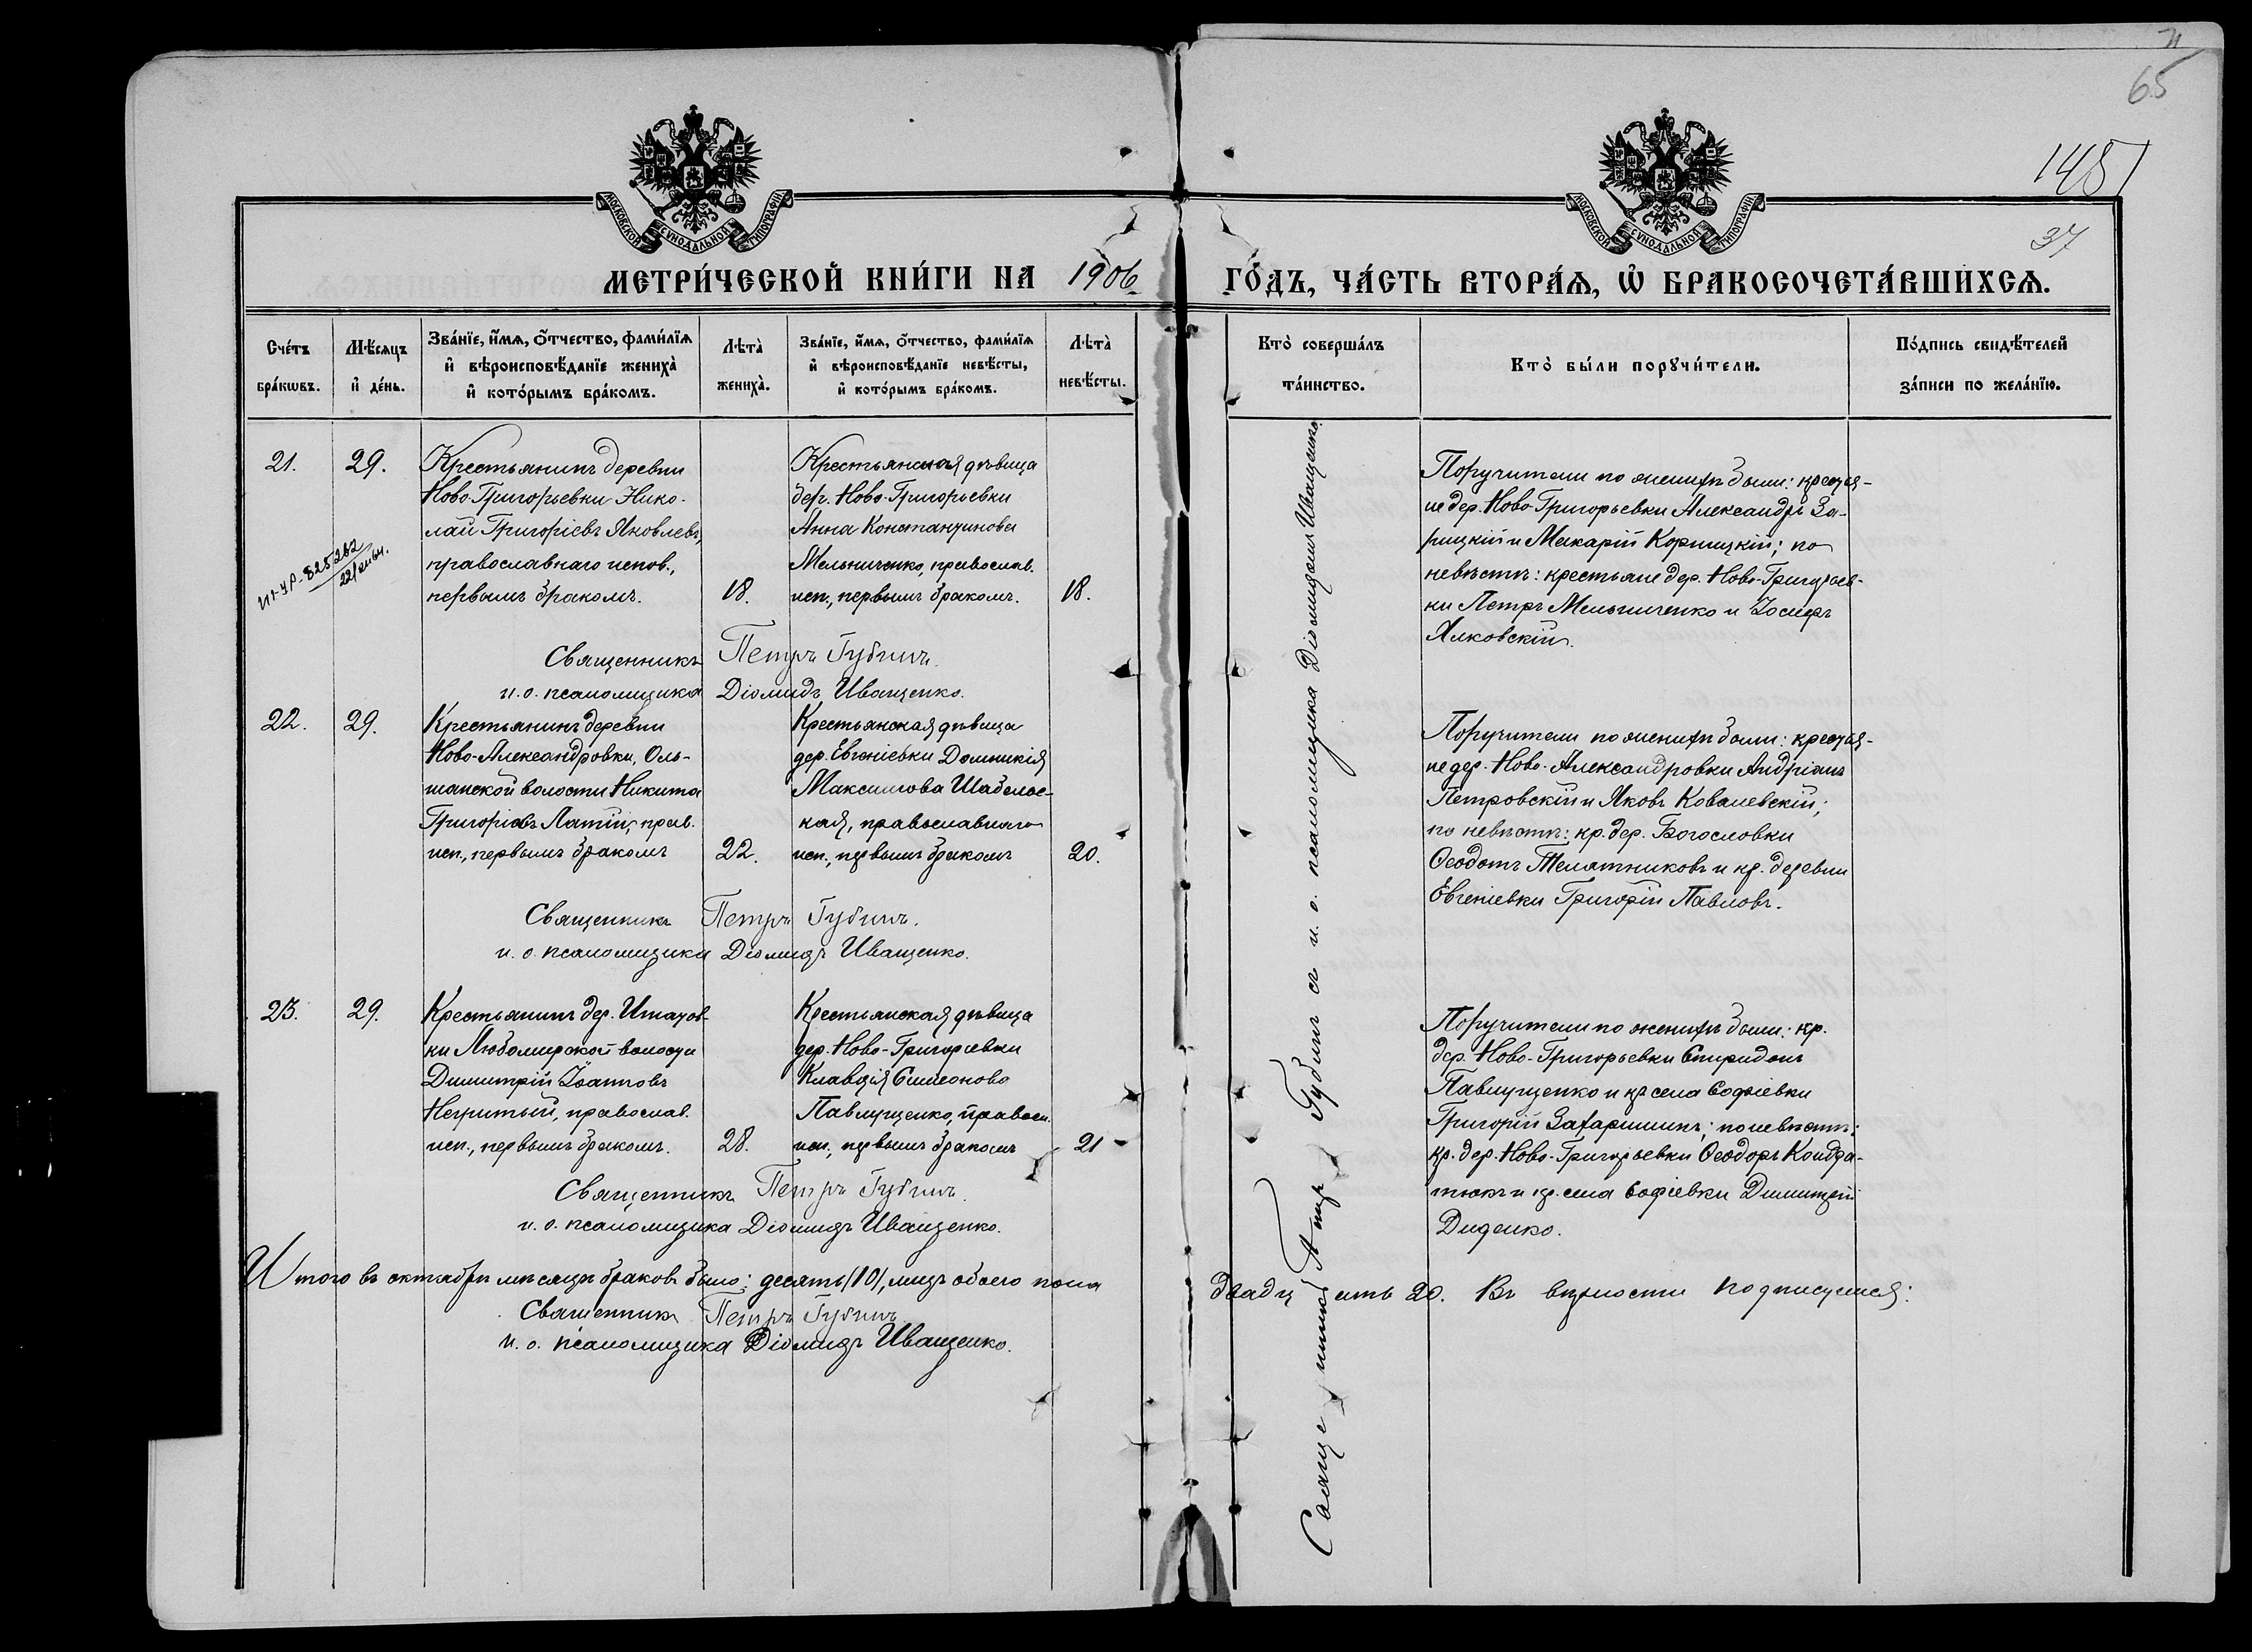 71
65
145
37
МОСКОВСКОЙ СѴНОДАЛЬНОЙ ТИПОГРАФІИ
МОСКОВСКОЙ СѴНОДАЛЬНОЙ ТИПОГРАФІИ
МЕТРИ́ЧЕСКОЙ КНИ́ГИ НА 1906 ГО́ДЪ, ЧА́СТЬ ВТОРА́Ѧ, Ѡ҆ БРАКОСОЧЕТА́ВШИХСѦ.
Сче́тъ
бра́кѡвъ.
Мѣ́сяцъ
и҆ де́нь.
Зва́нїе, и҆́мѧ, ѻ҆́тчество, фами́лїѧ
и҆ вѣроисповѣ́данїе жениха̀
и҆ кото́рымъ бра́комъ.
Лѣта̀
жениха̀.
Зва́нїе, и҆́мѧ, ѻ҆́тчество, фами́лїѧ
и҆ вѣроисповѣ́данїе невѣ́сты,
и҆ кото́рымъ бра́комъ.
Лѣта̀
невѣ́сты.
Кто̀ соверша́лъ
та́инство.
Кто̀ бы́ли порꙋчи́тели.
По́дпись свидѣ́телей
за́писи по жела́нїю.
21.
29.
Крестьянинъ деревни
Ново-Григорьевки Нико-
лай Григоріевъ Яковлевъ,
православнаго испов.,
первымъ бракомъ.
18.
Крестьянская дѣвица
дер. Ново-Григорьевки
Анна Константинова
Мельниченко, православ.
исп., первымъ бракомъ.
18.
825262
Поручители по женихѣ были: крестья-
не дер. Ново-Григорьевки Александръ За-
рицкій и Макарій Корницкій; по
невѣстѣ: крестьяне дер. Ново-Григорьев-
ки Петръ Мельниченко и Іосифъ
Ялковскій.
Священникъ Петръ Губинъ.
и. о. псаломщика Діомидъ Иващенко.
22.
29.
Крестьянинъ деревни
Ново-Александровки, Оль-
шанской волости Никита
Григоріевъ Латій, прав.
исп., первымъ бракомъ
22.
Крестьянская дѣвица
дер. Евгеніевки Домникія
Максимова Шабельс-
кая, православнаго
исп., первымъ бракомъ
20.
Поручители по женихѣ были: крестья-
не дер. Ново-Александровки Андріанъ
Петровскій и Яковъ Ковалевскій;
по невѣстѣ: кр. дер. Богословки
Ѳеодотъ Телятниковъ и кр. деревни
Евгеніевки Григорій Павловъ.
Священникъ Петръ Губинъ.
и. о. псаломщика Діомидъ Иващенко.
23.
29.
Крестьянинъ дер.
ки Любомирской волости
Димитрій Іоанновъ
православ.
исп., первымъ бракомъ.
28.
Крестьянская дѣвица
дер. Ново-Григорьевки
Клавдія Симеонова
Павлущенко, правосл.
исп., первымъ бракомъ
21
Поручители по женихѣ были: кр.
дер. Ново-Григорьевки Спиридонъ
Павлущенко и кр. села Софіевки
Григорій Захаришинъ; по невѣстѣ:
кр. дер. Ново-Григорьевки Ѳеодоръ Кондра-
тюкъ и кр. села Софіевки Димитрій
Диденко.
Священникъ Петръ Губинъ.
и. о. псаломщика Діомидъ Иващенко.
Священникъ Петръ Губинъ съ и. о. псаломщика Діомидомъ Иващенко.
Итого въ октябрѣ мѣсяцѣ браковъ было: десять /10/, лицъ обоего пола двадцать 20. Въ вѣрности подписуемся:
Священникъ Петръ Губинъ
и. о. псаломщика Діомидъ Иващенко.